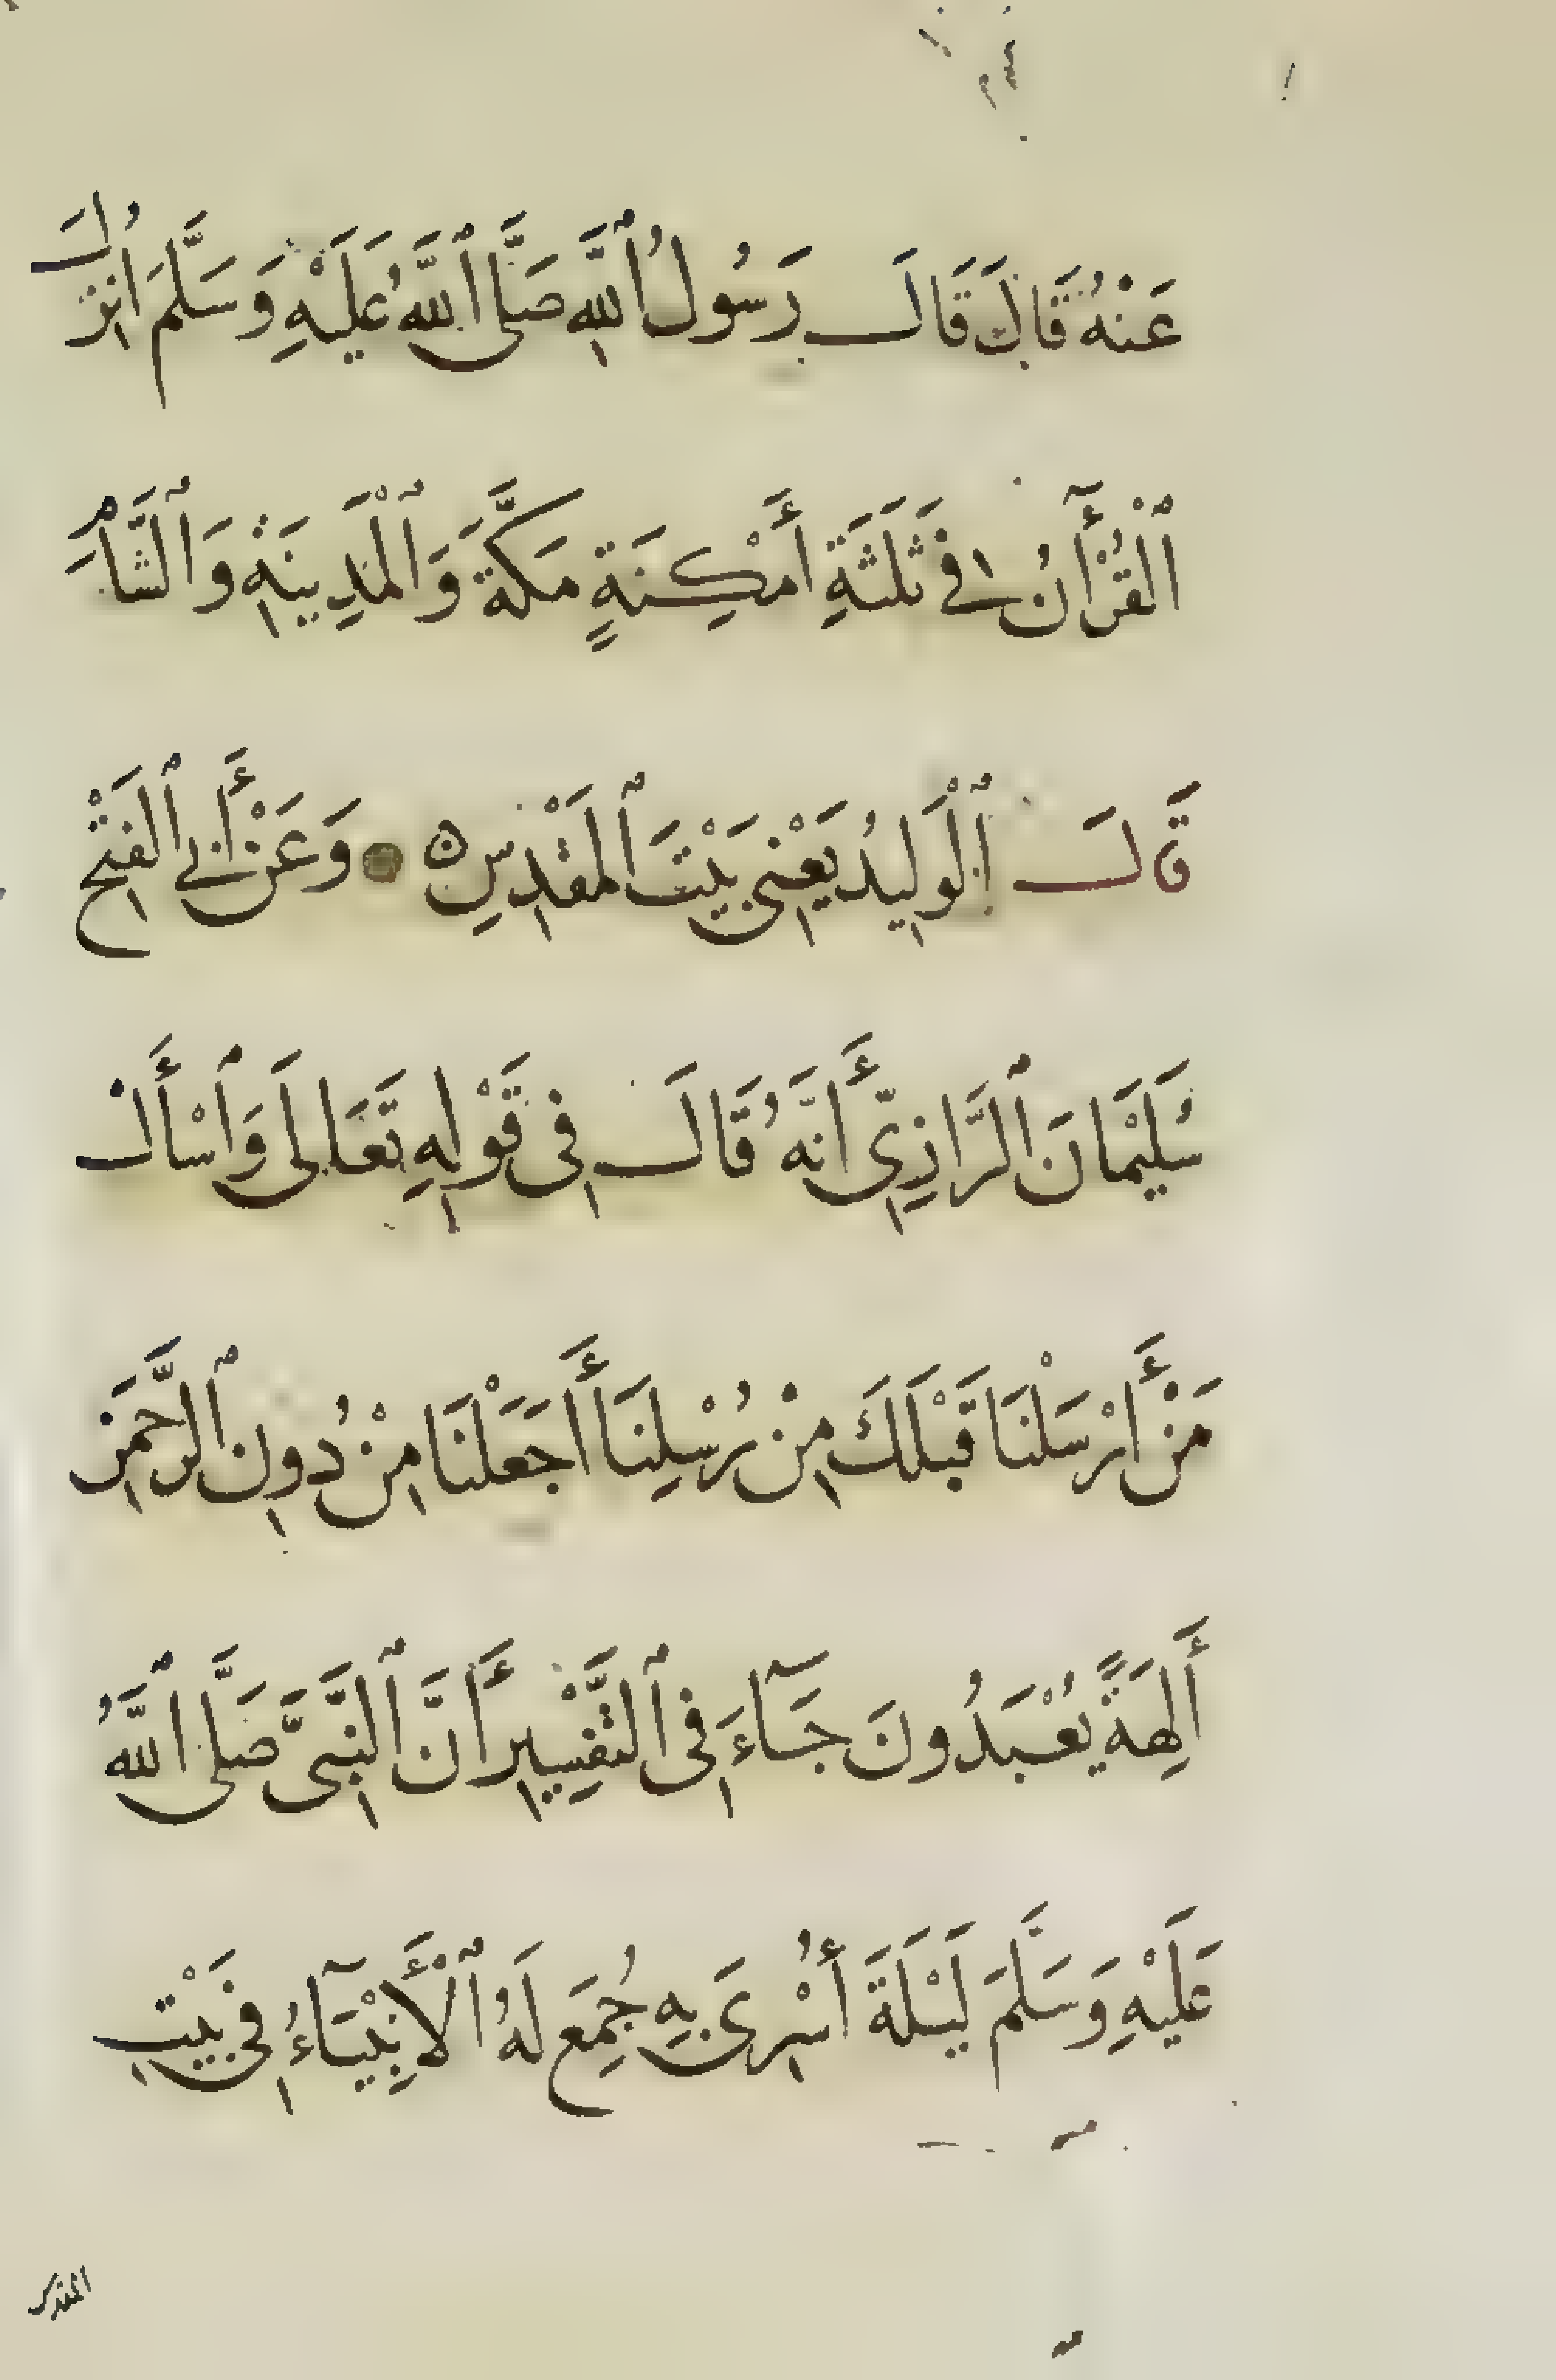 عَنْهُ قَالَ قَالَ رَسُولُ ٱللَّهِ صَلَّى ٱللَّهُ عَلَيْهِ وَسَلَّمَ اُنْزِلَ
ٱلْقُرْأٓنُ فِي ثَلَثَةِ أَمْكِنَةٍ مَكَّةَ وَٱلْمَدِينَةِ وَٱلشَّأْمِ
قَالَ ٱلْوَلِيدُ يَعْنِي بَيْتَ ٱلْمَقْدِسِ ۝ وَعَنْ أَبِي ٱلْفَتْحِ
سُلَيْمَانَ ٱلرَّازِيِّ أَنَّهُ قَالَ فِي قَوْلِهِ تَعَالَى وَٱسْأَلْ
مَنْ أَرْسَلْنَا قَبْلَكَ مِنْ رُسْلِنَا أَجَعَلْنَا مِنْ دُونِ ٱلرَّحْمَنِ
أَلِهَةً يُعْبَدُونَ جَآءَ فِي ٱلتَّفْسِيرِ أَنَّ ٱلنَّبِيَّ صَلَّى ٱللَّهُ
عَلَيْهِ وَسَلَّمَ لَيْلَةَ أُسْرِيَ بِهِ جُمِعَ لَهُ ٱلْأَنْبِيَآءُ فِي بَيْتِ
المقدس